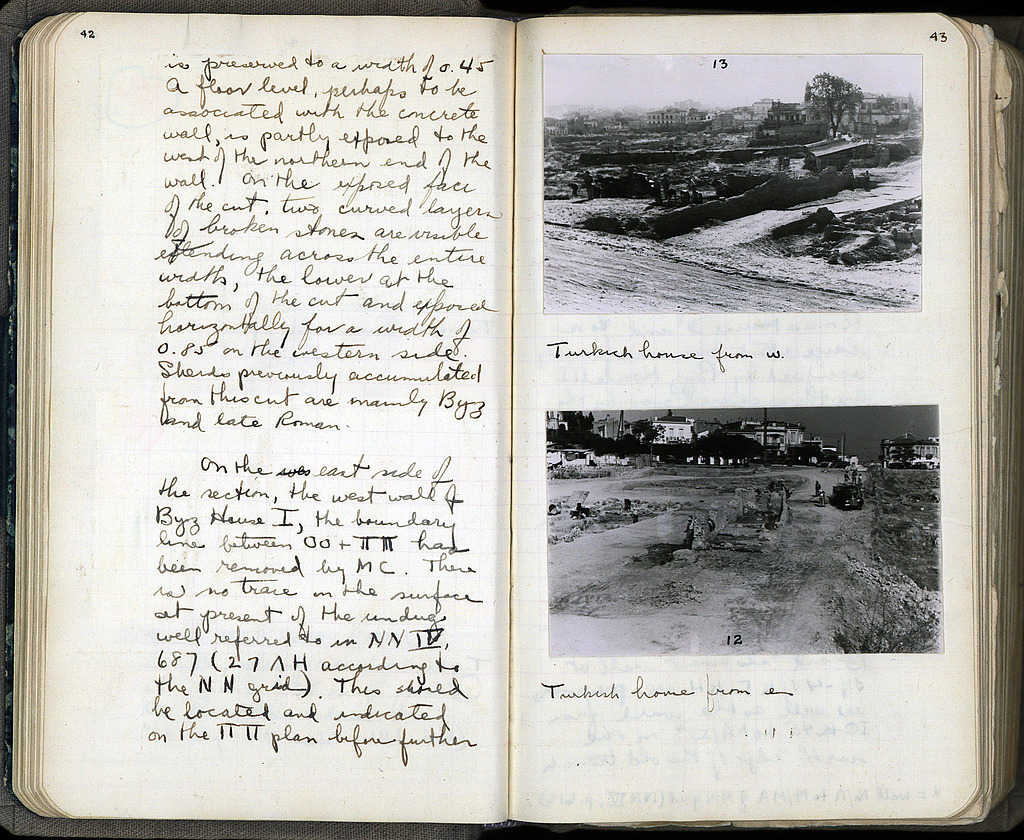 42
is preserved to a width of 0.45
A floor level, perhaps to be
associated with the concrete
wall, is partly exposed to the
west of the northern end of the
wall. On the exposed face
of the cut, two curved layers
of broken stones are visible
extending across the entire
width, the lower at the
bottom of the cut and exposed
horizontally for a width of
0.85 on the western side.
Sherds previously accumulated
from this cut are mainly Byz
and late Roman.
On the wes east side of
the section, the west wall of
Byz House I, the boundary
line between OO + ΠΠ had
been removed by MC. There
is no trace on the surface
at present of the undug
well referred to in NN IV,
687 (27 ΛH according to
the NN grid). This should
be located and indicated
on the ΠΠ plan before further
43
13
Turkish house from w.
12
Turkish house from e